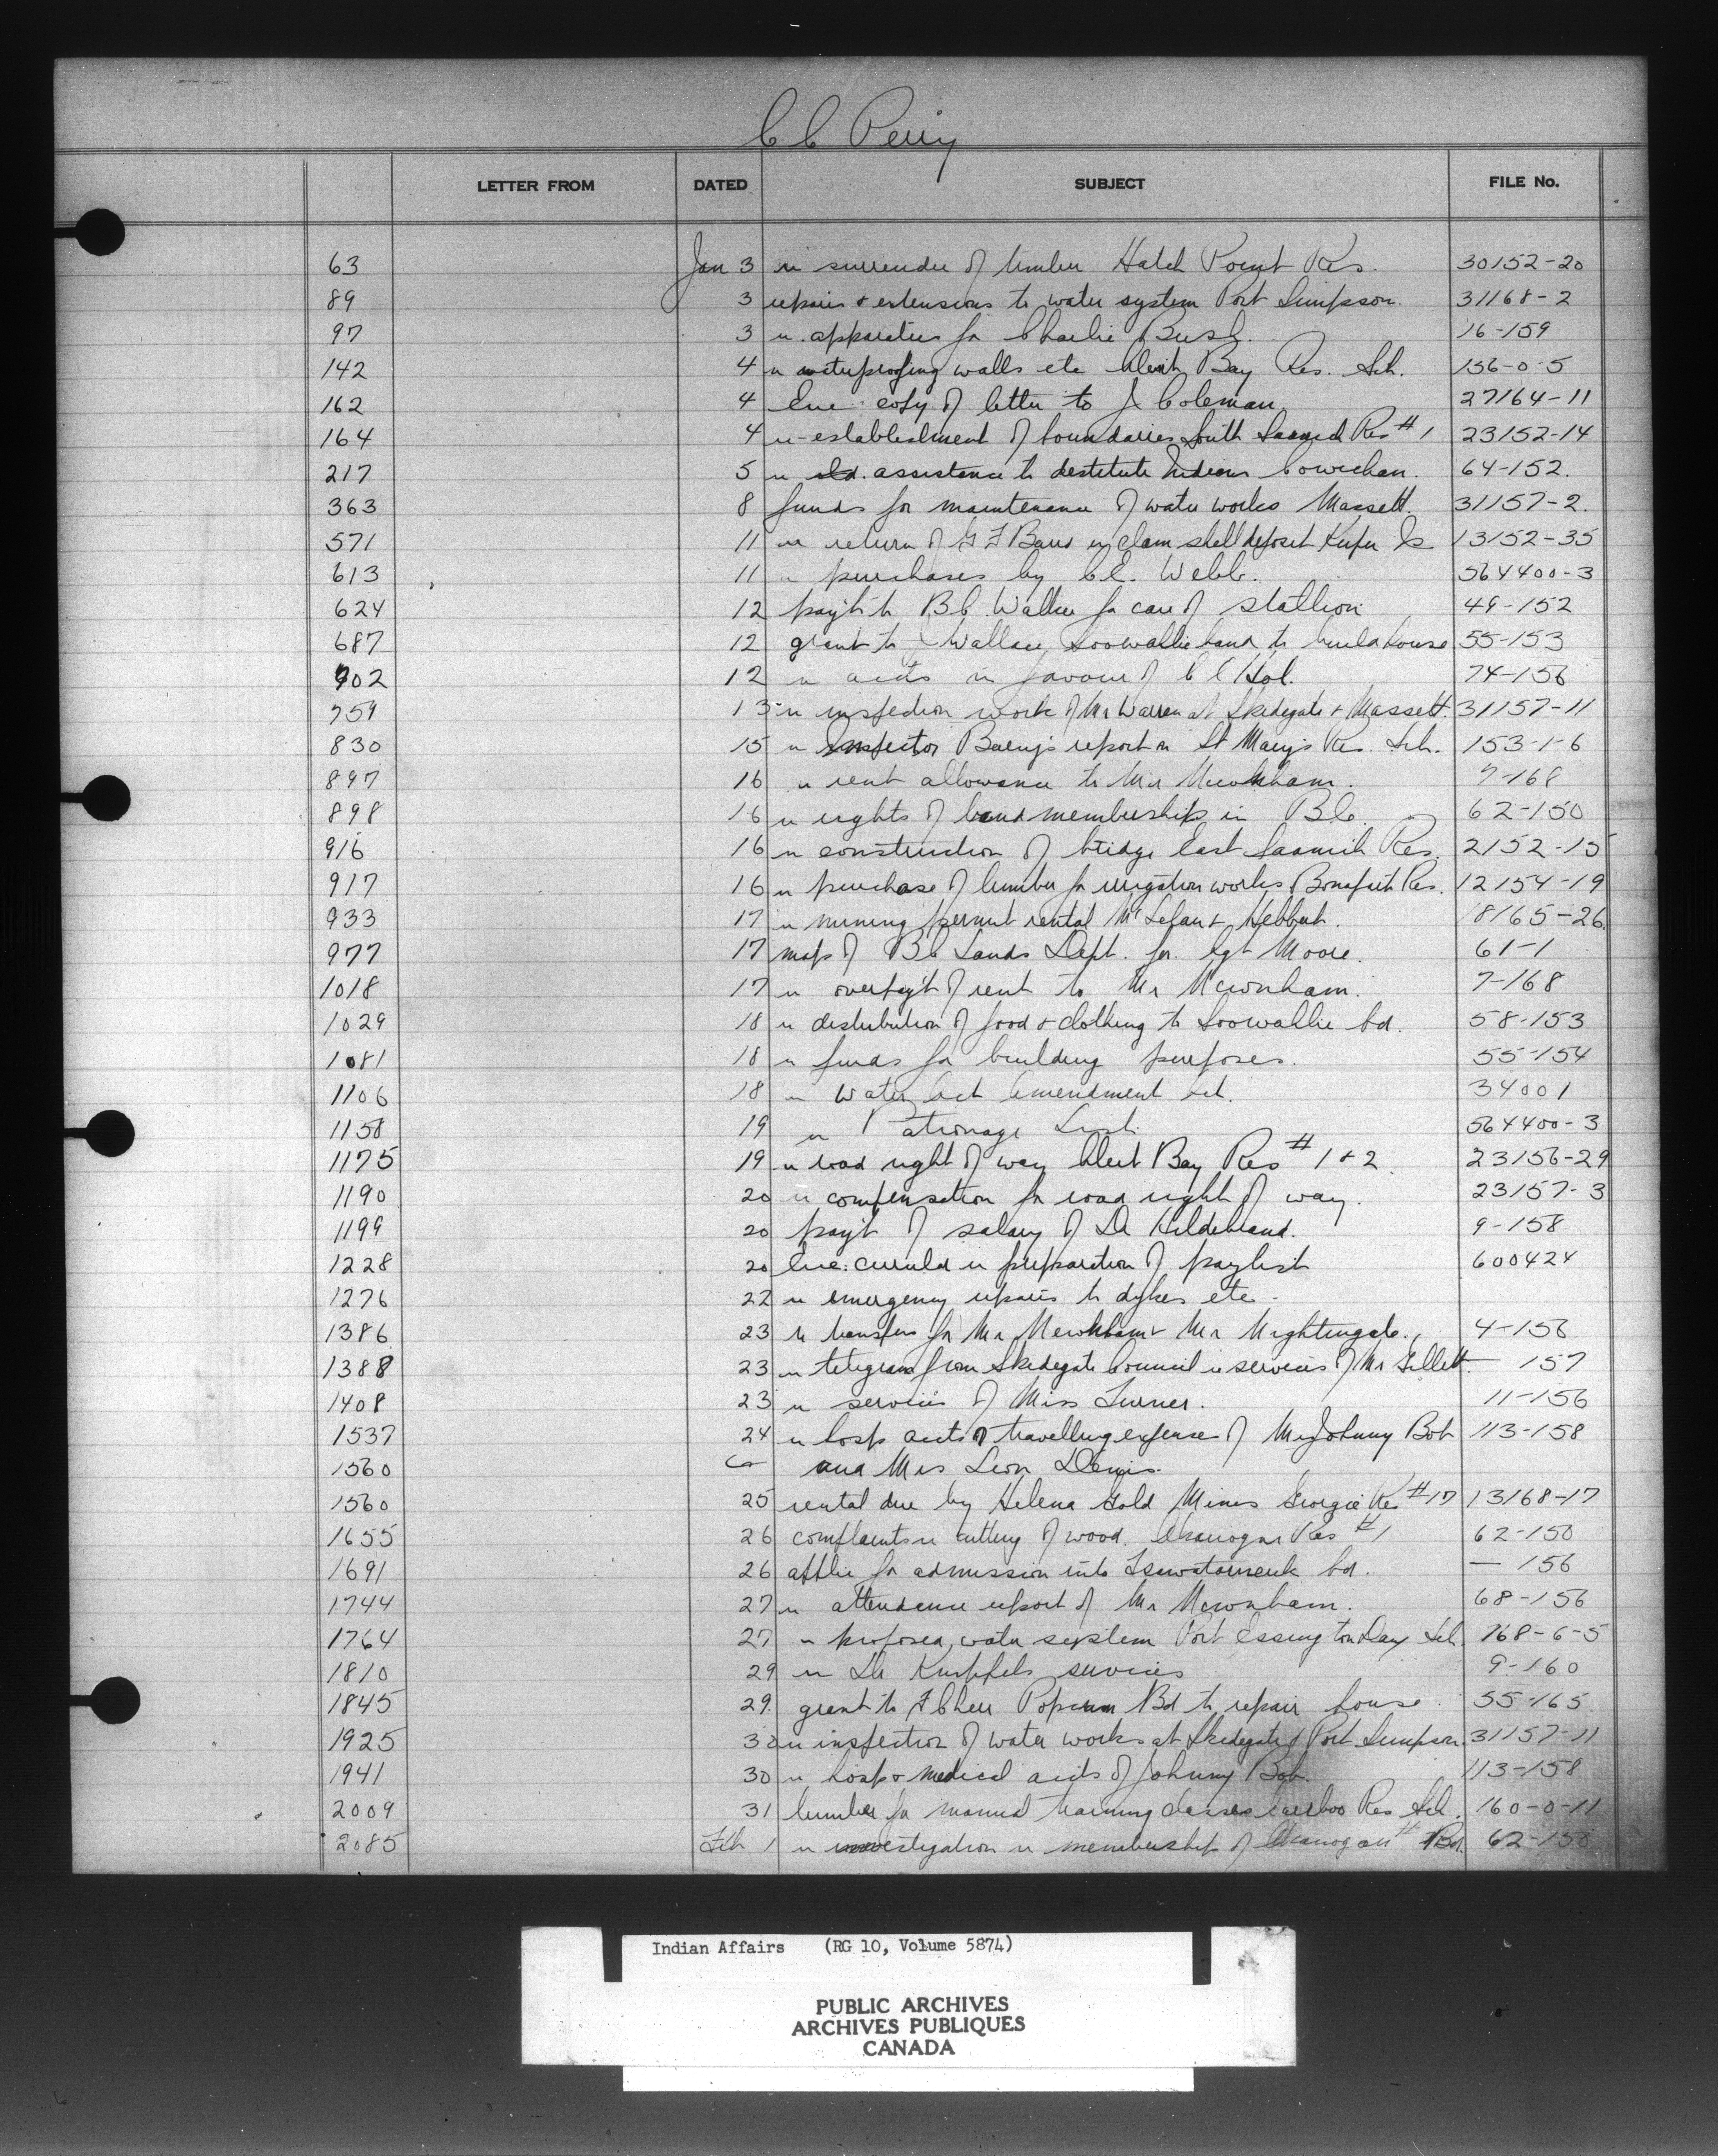 C C Perry
LETTER FROM DATED SUBJECT FILE No.
63 Jan 3 re surrender of timber Hatch Point Res. 30152-20
89 3 repairs & extensions to water system Port Simpson. 31168-2
97 3 re apparatus for Charlie Bush. 16-159
142 4 re waterproofing walls etc Alert Bay Res. Sch. 156-0-5
162 4 Enc copy of letter to J Coleman 27164-11
164 4 re-establishment of boundaries South Saanich Res #1 23152-14
217 5 re assistance to destitute Indians Cowichan. 64-152.
363 8 funds for maintenance of water works Massett. 31157-2.
571 11 re return of G F in clam shell deposit Kuper Is 13152-35
613 11 " purchases by C.E. Webb. 564400-3
624 12 pay't to B C Walker for care of stallion 49-152
687 12 grant to J Wallace Soowahlie band to build house 55-153
902 12 re accts in favour of C C Hol. 74-156
759 13 re inspection work of Mr Warren at Skidegate & Massett. 31157-11
830 15 re Inspector Barry's report on St Mary's Res. Sch. 153-1-6
897 16 re rent allowance to Mr Newnham. 7-168
898 16 re rights of band membership in B.C. 62-150
916 16 re construction of bridge East Saanich Res. 2152-15
917 16 re purchase of lumber for irrigation works Bonaparte Res. 12154-19
933 17 re mining permit rental & Hebbert. 18165-26
977 17 map of B C Lands Dept. for Sgt Moore. 61-1
1018 17 re overpay't of rent to Mr Newnham. 7-168
1029 18 re distribution of food & clothing to Soowahlie bd. 58-153
1081 18 re funds for building purposes. 55-154
1106 18 re Water Act Amendment Act. 34001
1158 19 re Patronage List 564400-3
1175 19 re road right of way Alert Bay Res #1 & 2 23156-29
1190 20 re compensation for road right of way. 23157-3
1199 20 pay't of salary of Dr Hildebrand. 9-158
1228 20 Enc. circular re preparation of paylist 600424
1276 22 re emergency repairs to dykes etc.
1386 23 re transfers for Mr Newnham & Mr Nightingale. 4-156
1388 23 re telegram from Skidegate Council re services of Mr Gillett — 157
1408 23 re services of Miss Turner. 11-156
1537 24 re hosp accts & travelling expenses of Mrs Johnny Bob 113-158
1560 and Mrs Leon Denis.
1560 25 rental due by Helena Gold Mines Georgie Res #17 13168-17
1655 26 complaints re cutting of wood. Okanagan Res #1 62-150
1691 26 applic for admission into Tsawataineuk bd. — 156
1744 27 re attendance report of Mr Newnham. 68-156
1764 27 re proposed water system Port Essington Day Sch. 168-6-5
1810 29 re Dr services 9-160
1845 29 grant to F Cheer Popcum Bd to repair house. 55-165
1925 30 re inspection of water works at Skidegate & Port Simpson. 31157-11
1941 30 re hosp & medical accts of Johnny Bob. 113-158
2009 31 lumber for manual training classes Cariboo Res Sch. 160-0-11
2085 Feb 1 re investigation re membership of Okanagan Bd. 62-150
Indian Affairs (RG 10, Volume 5874)
PUBLIC ARCHIVES
ARCHIVES PUBLIQUES
CANADA